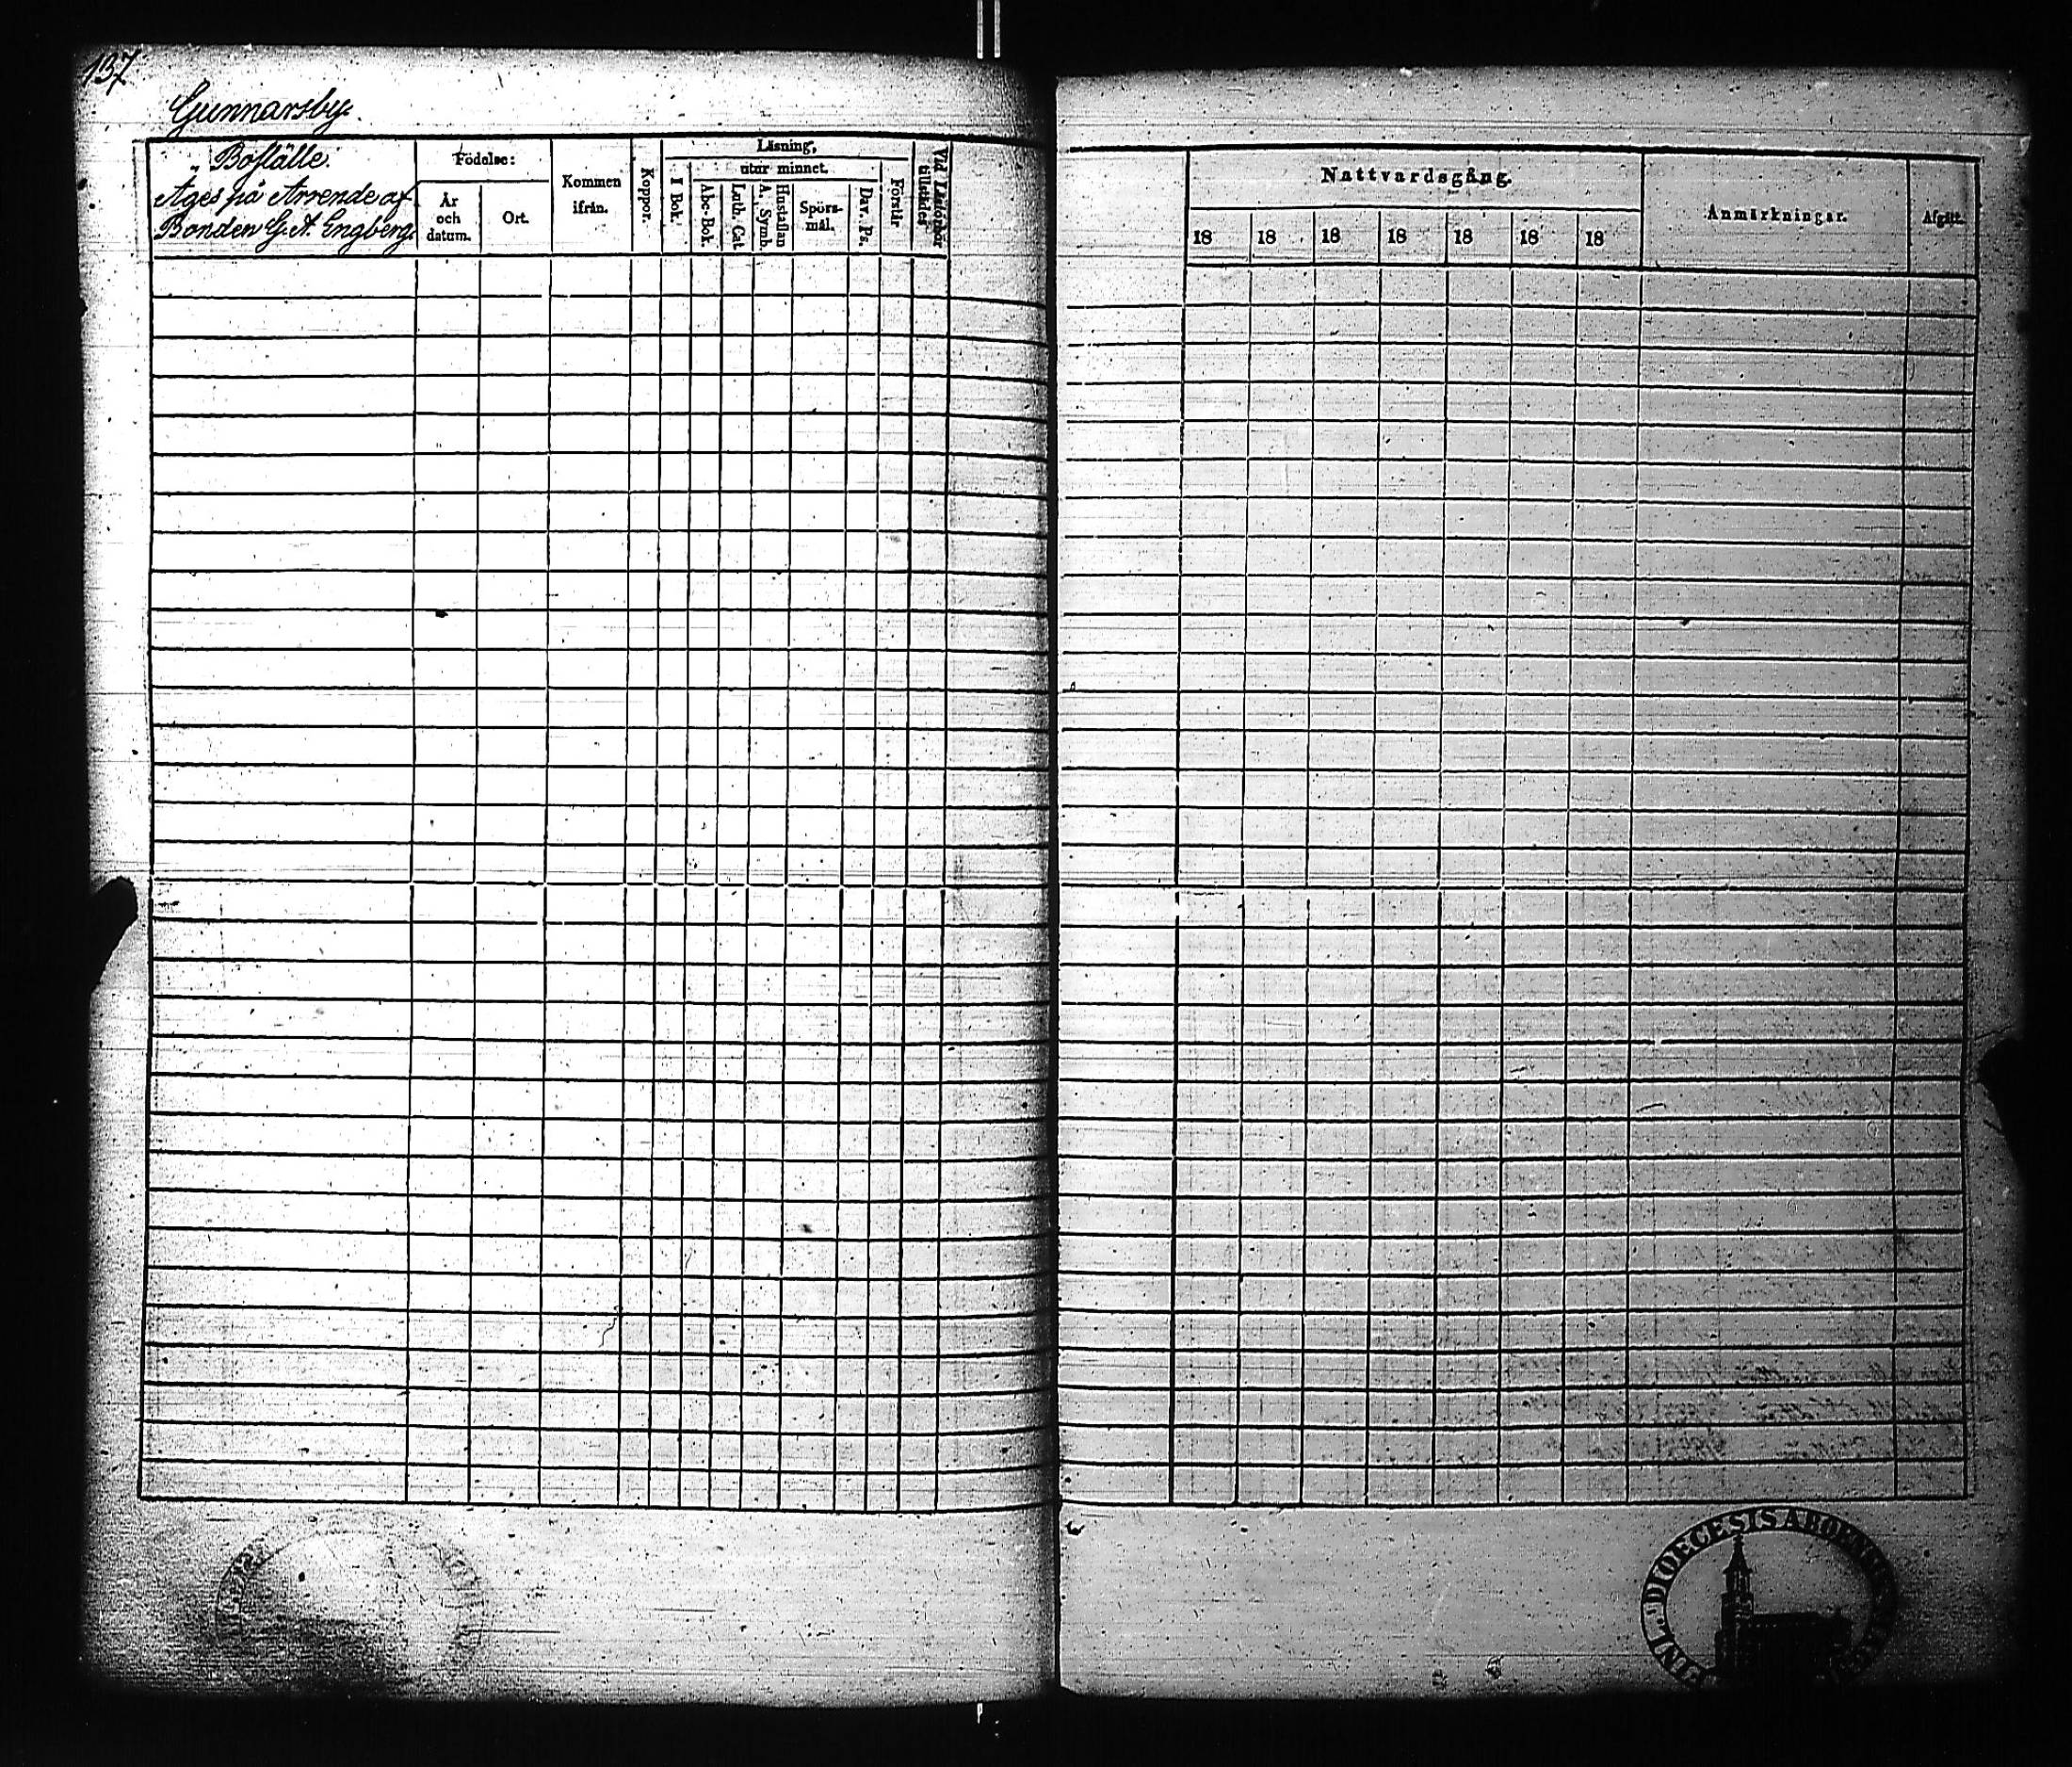 137
Gunnarsby.
" Boställe.
Ages på Arrende af
Bonden G. A. Engberg.
Födelse:
År
och
datum.
Ort.
Kommen
ifrån.
Koppor.
Läsning,
utur minnet.
I Bok.
Abc-Bok.
Luth. Cat.
A. Symb.
Hustaflan
Spörs-
mål.
Dav. Ps.
Förstår
Vid Läsförhör
tillstädes
Nattvardsgång.
18 18 18 18 18 18 18
Anmärkningar.
Afgått.
DIOECESIS ABOENSIS